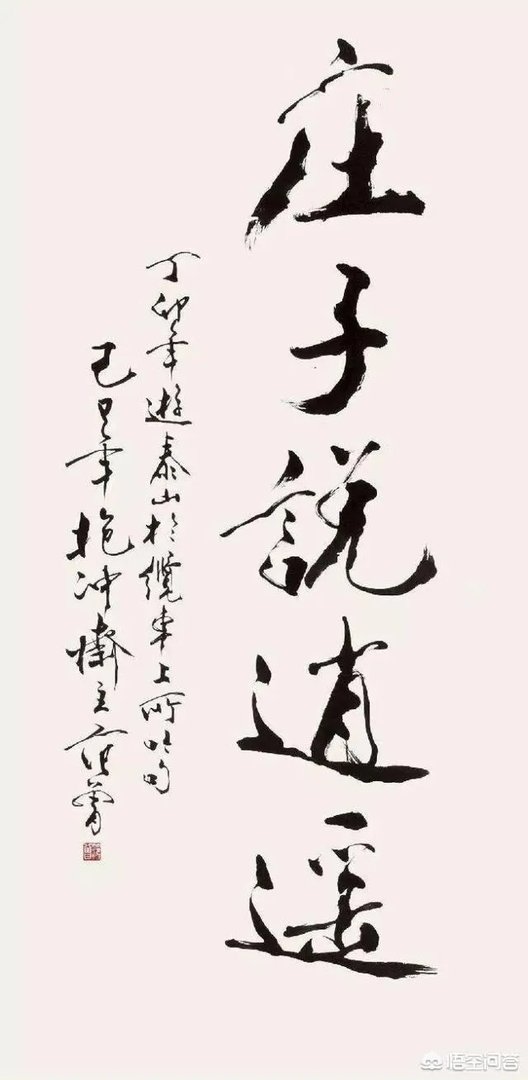 庄子説逍遥
丁卯年遊泰山於纜車上所吟句
己巳年抱冲斋主范曾
悟空问答